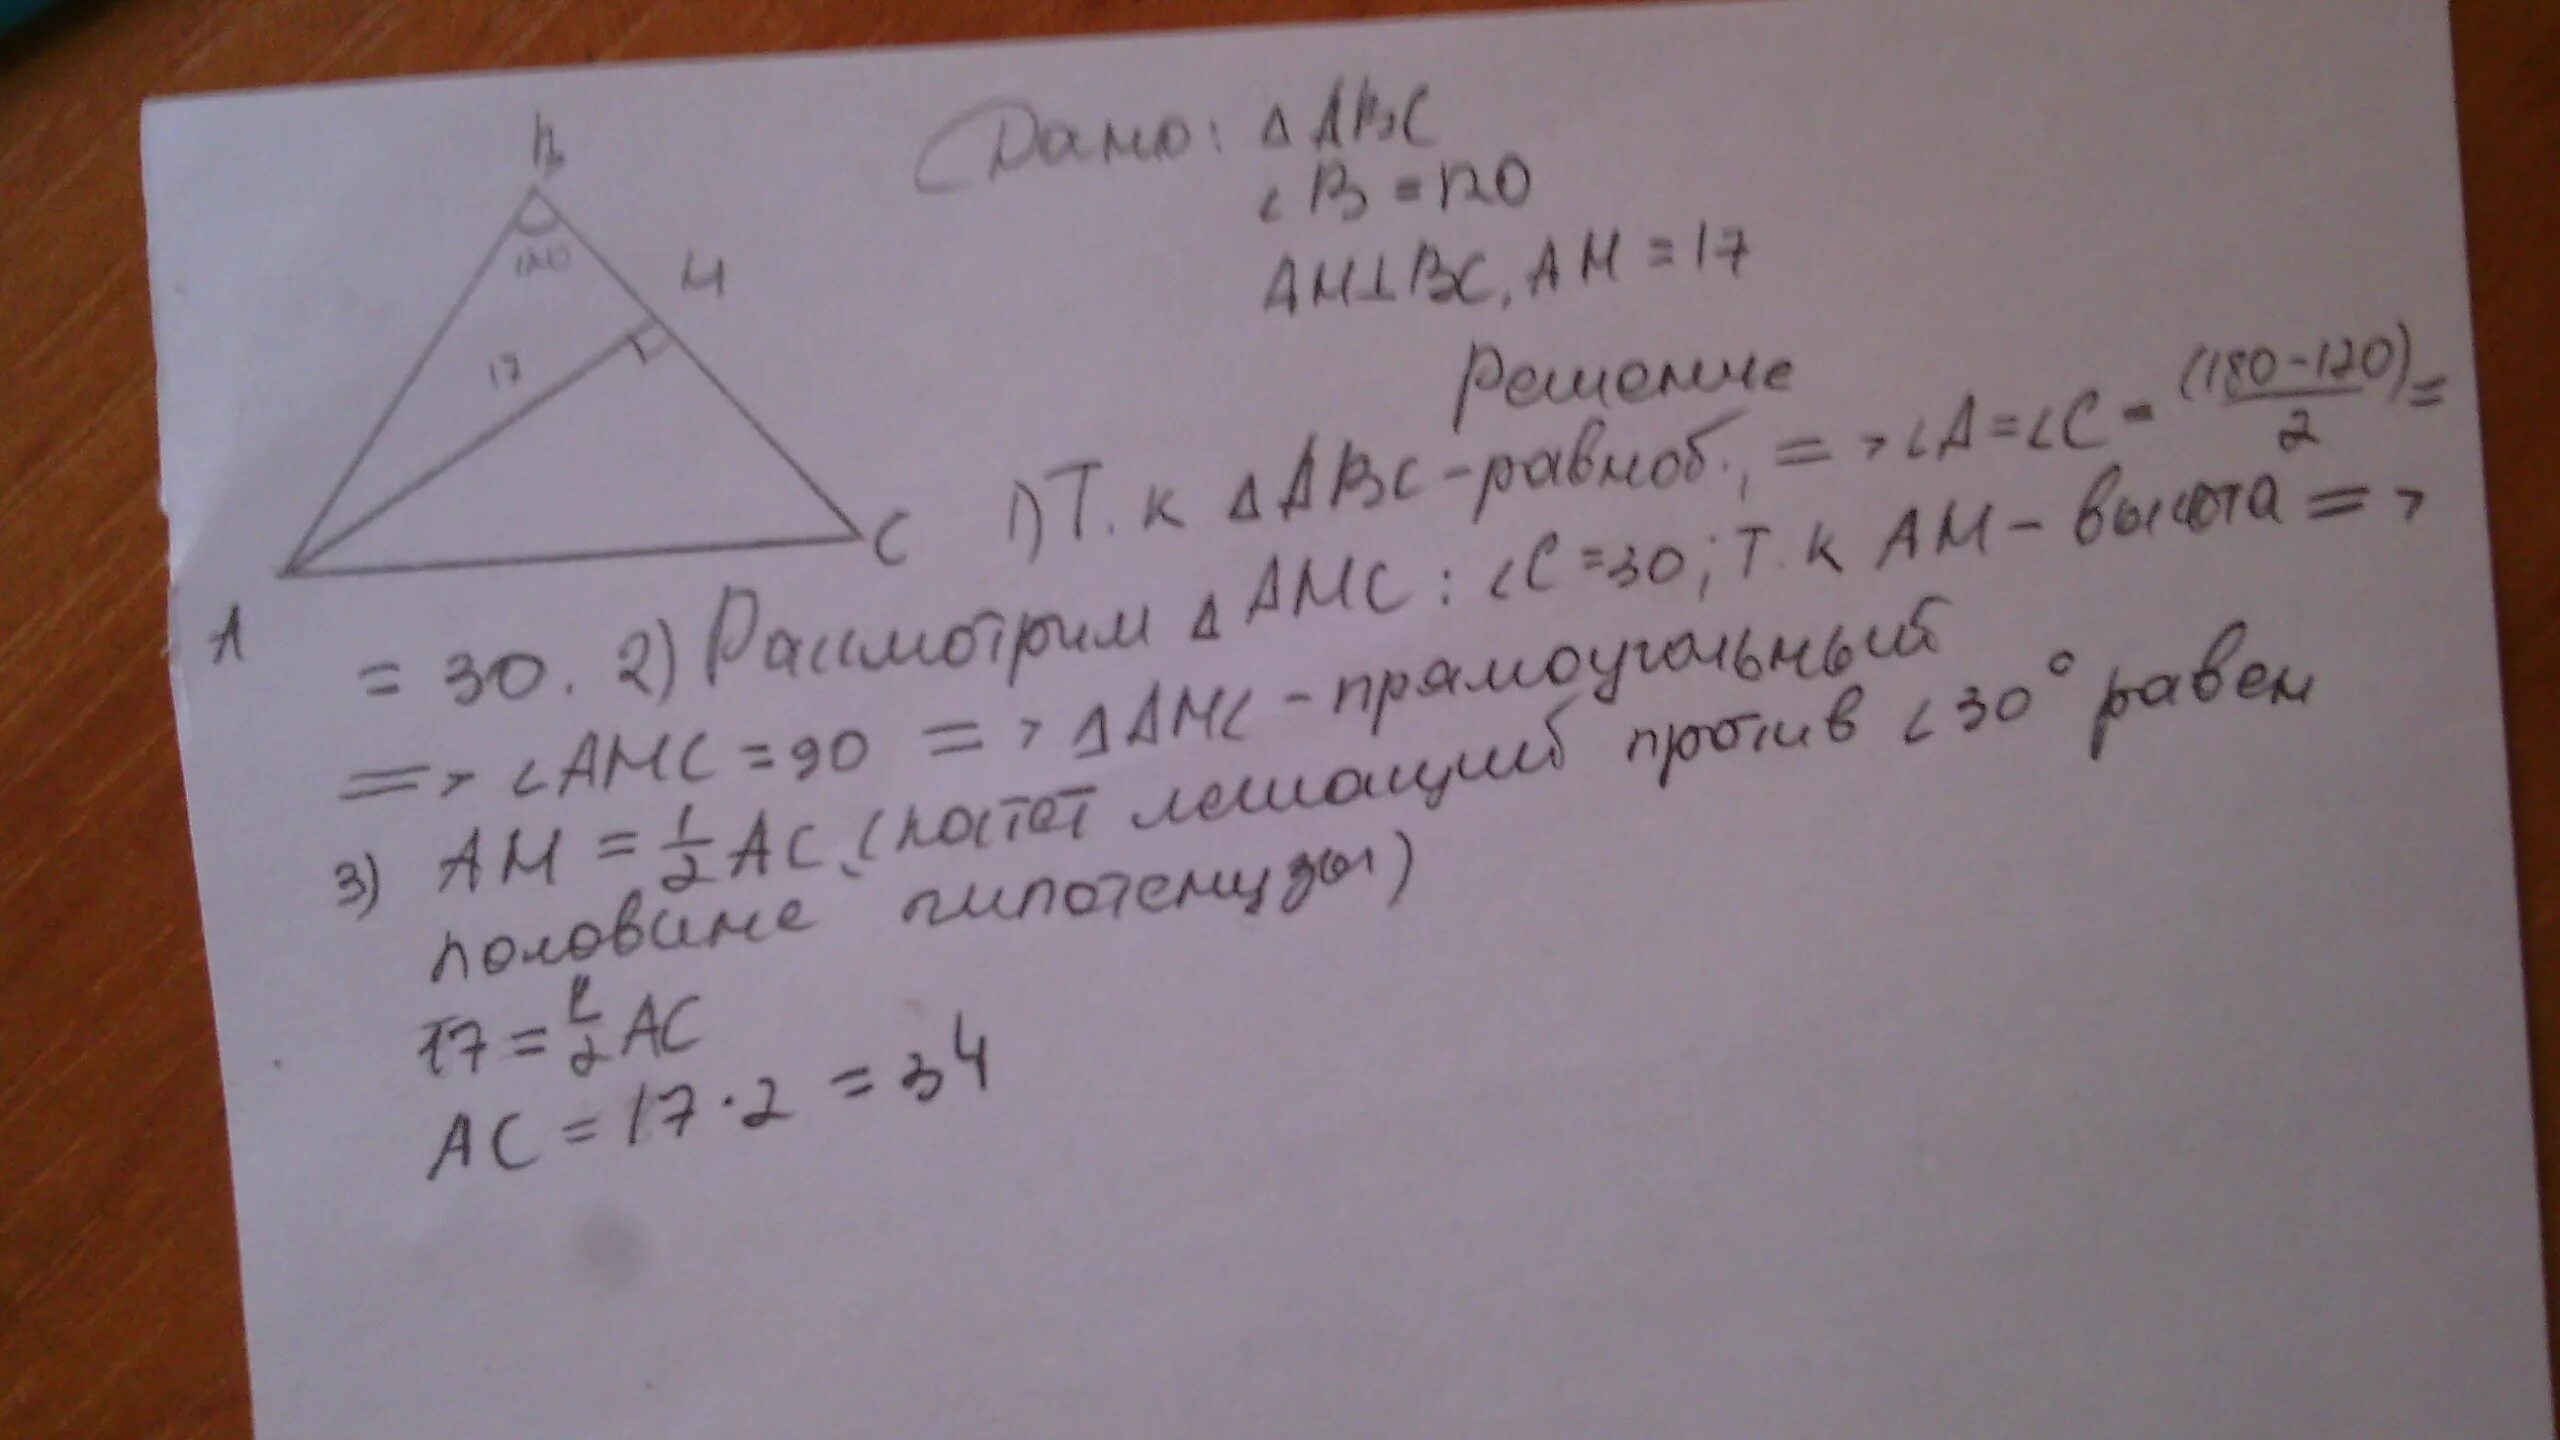 B
120
M
17
C
A
Дано: Δ ABC
∠B = 120
AM⊥BC, AM = 17
Решение
1) Т. к Δ ABC - равноб., => ∠A = ∠C = (180-120)/2 =
= 30. 2) Рассмотрим Δ AMC: ∠C = 30; т. к AM - высота =>
=> ∠AMC = 90 => Δ AMC - прямоугольный
3) AM = 1/2 AC (катет лежащий против ∠30° равен
половине гипотенузы)
17 = 1/2 AC
AC = 17·2 = 34